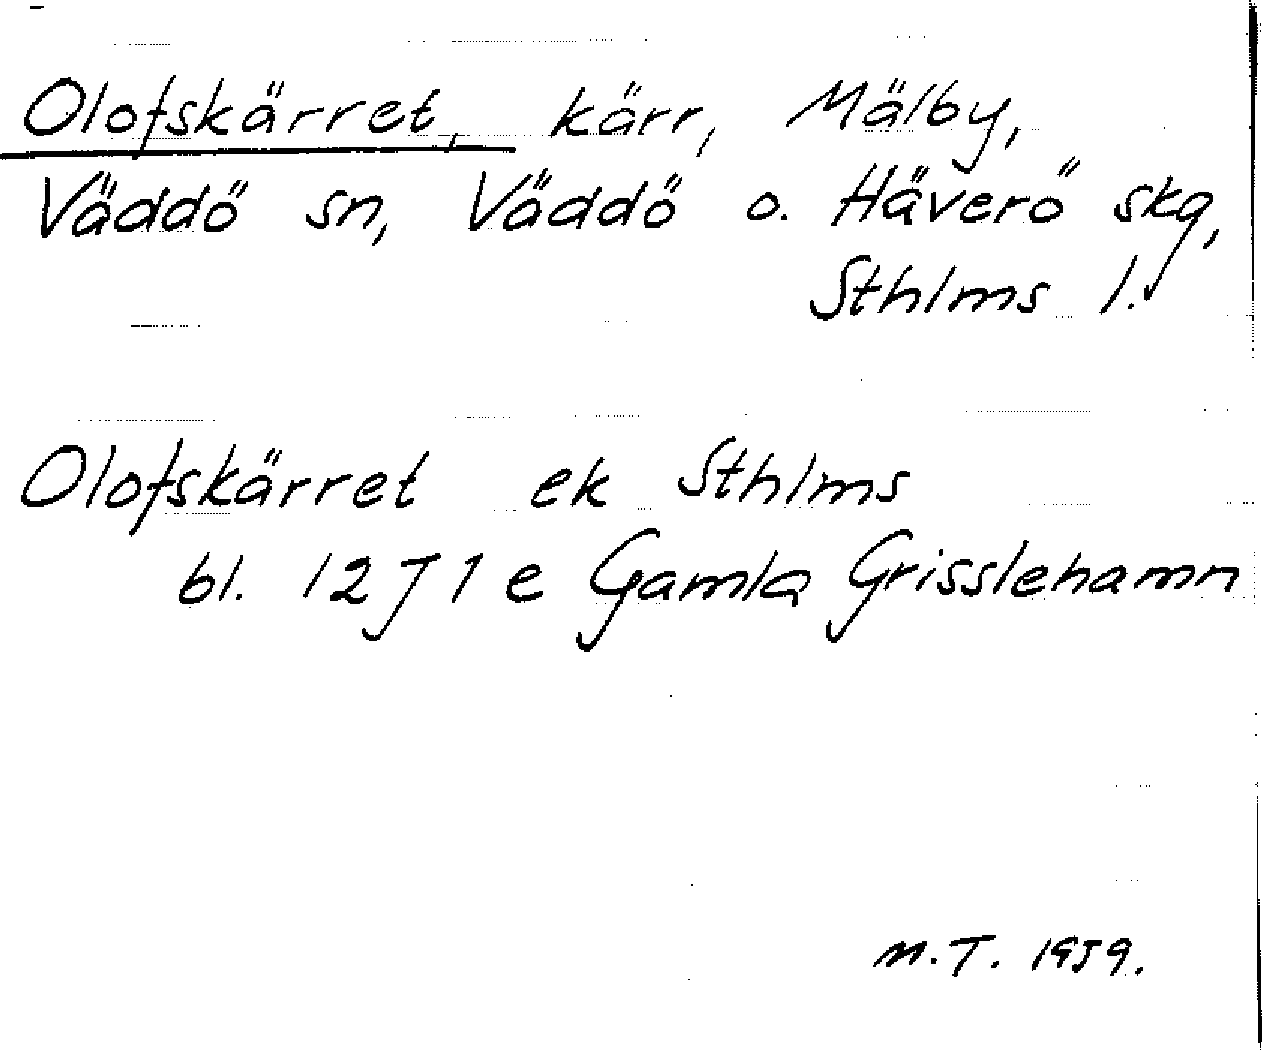 Olofskärret, kärr, Mälby,
Väddö sn, Väddö o. Häverö skg,
Sthlms l.
Olofskärret ek Sthlms
bl. 12 J 1 e Gamla Grisslehamn
M.T. 1959.